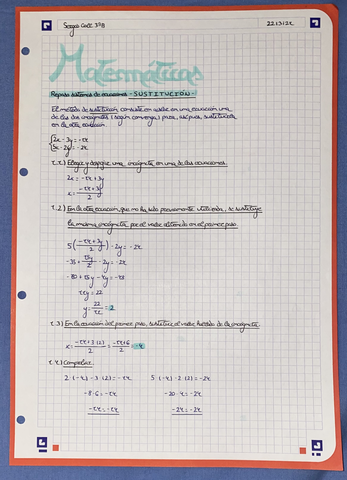 Sergio Coll 3ºB 22|3|21
Matemáticas
Repaso sistemas de ecuaciones - SUSTITUCIÓN -
El método de sustitución consiste en aislar en una ecuación una
de las dos incógnitas (según convenga) para, así, sustituirla
en la otra ecuación.
2x - 3y = -14
5x - 2y = -24
1.1) Elegir y despejar una incógnita en una de las ecuaciones.
2x = -14 + 3y
x = (-14 + 3y)/2
1.2) En la otra ecuación, que no ha sido previamente utilizada, se sustituye
la misma incógnita por el valor obtenido en el primer paso.
5((-14 + 3y)/2) - 2y = -24
-35 + 15y/2 - 2y = -24
11y = 22
y = 22/11 = 2
1.3) En la ecuación del primer paso, sustituir el valor hallado de la incógnita.
x = (-14 + 3·(2))/2 = (-14 + 6)/2 = -4
1.4) Comprobar.
2·(-4) - 3·(2) = -14 5·(-4) - 2·(2) = -24
-8 - 6 = -14 -20 - 4 = -24
-14 = -14 -24 = -24